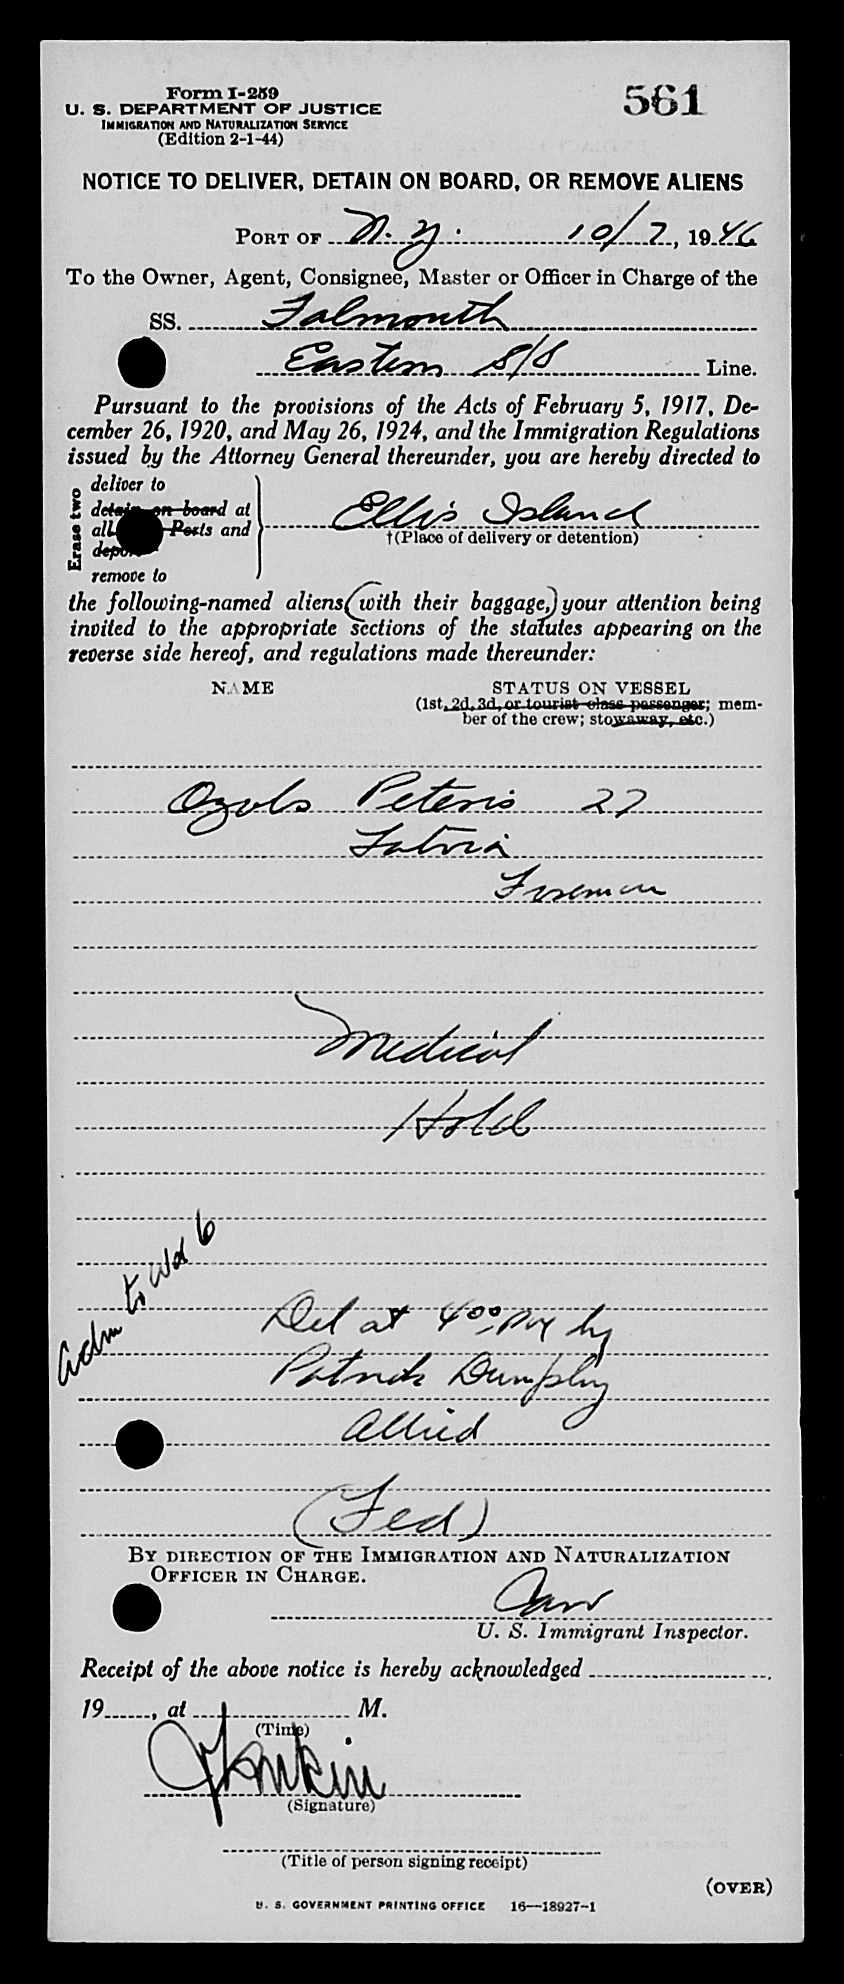 Form I-259
561
U. S. DEPARTMENT OF JUSTICE
IMMIGRATION AND NATURALIZATION SERVICE
(Edition 2-1-44)
NOTICE TO DELIVER, DETAIN ON BOARD, OR REMOVE ALIENS
PORT OF N. Y. 10/7, 1946
To the Owner, Agent, Consignee, Master or Officer in Charge of the
SS. Falmouth
Eastern S/S Line.
Pursuant to the provisions of the Acts of February 5, 1917, De-
cember 26, 1920, and May 26, 1924, and the Immigration Regulations
issued by the Attorney General thereunder, you are hereby directed to
Erase two
deliver to
detain on board at
all Ports and
deport
remove to
Ellis Island
†(Place of delivery or detention)
the following-named aliens (with their baggage,) your attention being
invited to the appropriate sections of the statutes appearing on the
reverse side hereof, and regulations made thereunder:
NAME STATUS ON VESSEL
(1st, 2d, 3d, or tourist class passenger; mem-
ber of the crew; stowaway, etc.)
Ozols Peteris 27
Latvia
Fireman
Medical
Hold
adm to Wd 6
Del at 4 00 PM by
Patrick Dumphy
Allied
(Fed)
BY DIRECTION OF THE IMMIGRATION AND NATURALIZATION
OFFICER IN CHARGE.
Carr
U. S. Immigrant Inspector.
Receipt of the above notice is hereby acknowledged
19 , at M.
(Time)
(Signature)
(Title of person signing receipt)
(OVER)
U. S. GOVERNMENT PRINTING OFFICE 16—18927-1